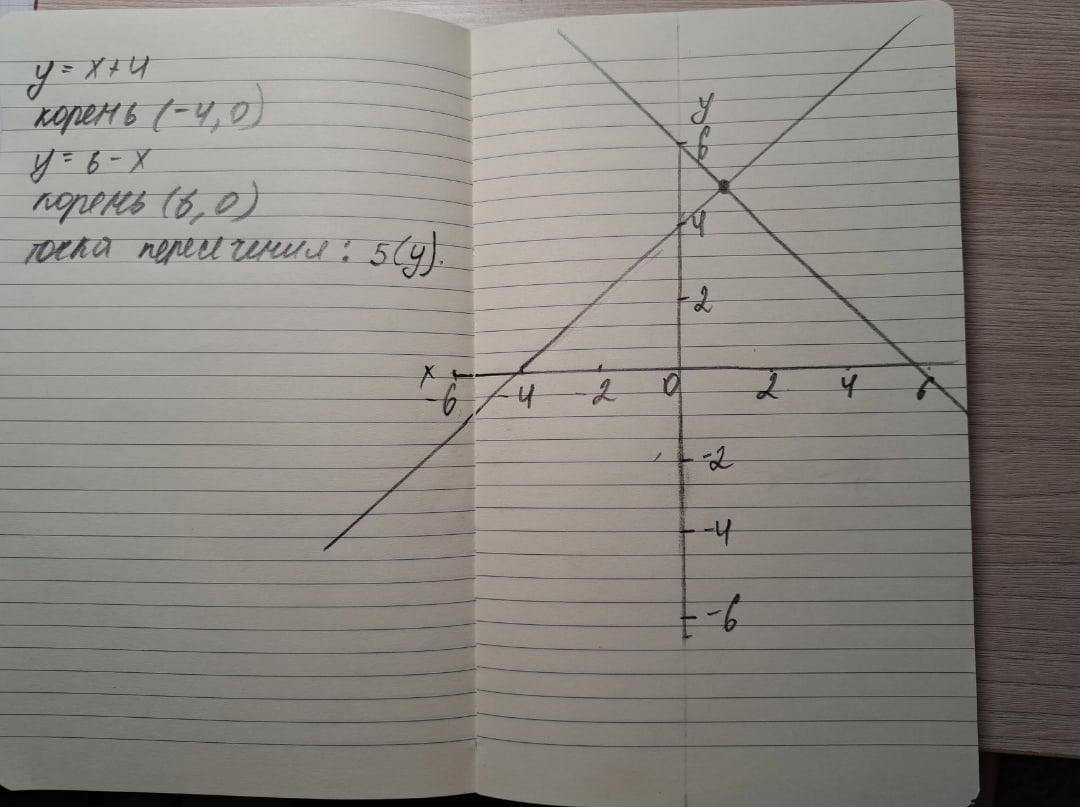 y = x + 4
корень (-4, 0)
y = 6 - x
корень (6, 0)
точка пересечения: 5(y).
y
6
4
2
x
-6 -4 -2 0 2 4 6
-2
-4
-6